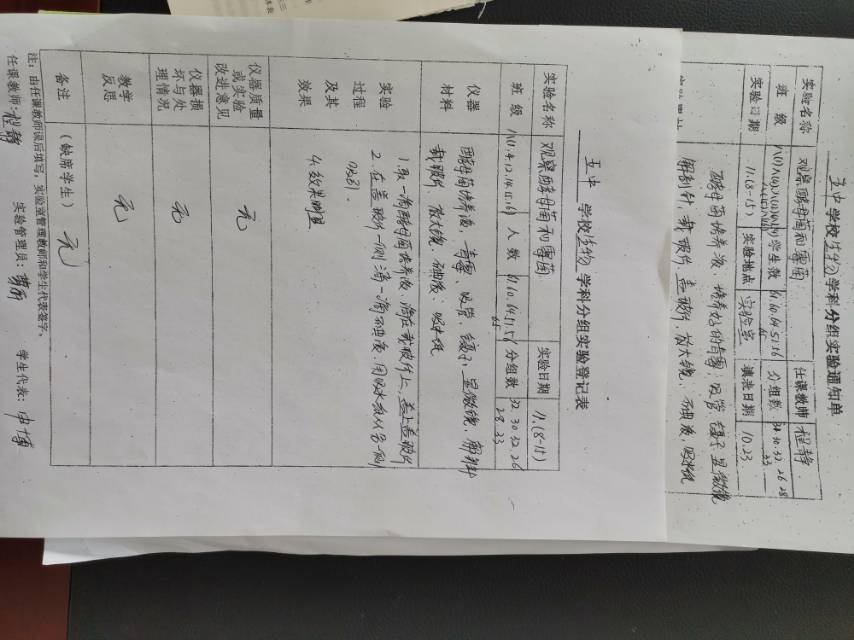 五中 学校生物学科分组实验通知单
实验名称 观察酵母菌和霉菌 任课教师 程静
班级 学生数 分组数
实验日期 11.(8-15) 实验地点 实验室 填表日期 10.23
酵母菌培养液 培养好的青霉 吸管 镊子 显微镜
解剖针 载玻片 盖玻片 放大镜 碘液 吸水纸
五中 学校生物学科分组实验登记表
实验名称 观察酵母菌和霉菌 实验日期 11.(8-15)
班级 人数 分组数 32.30.32.26
28.33
仪器
材料
酵母菌培养液、青霉、吸管、镊子、显微镜、解剖针
载玻片 放大镜、碘液、吸水纸
实验
过程
及其
效果
1.取一滴酵母菌培养液,滴在载玻片上,盖上盖玻片
2.在盖玻片一侧滴一滴碘液,用吸水纸从另一侧
吸引.
4.效果明显
仪器质量
或实验
改进意见
无
仪器损
坏与处
理情况
无
教学
反思
无
备注 (缺席学生) 无
注:由任课教师课后填写,实验室管理教师和学生代表签字。
任课教师:程静 实验管理员: 学生代表: